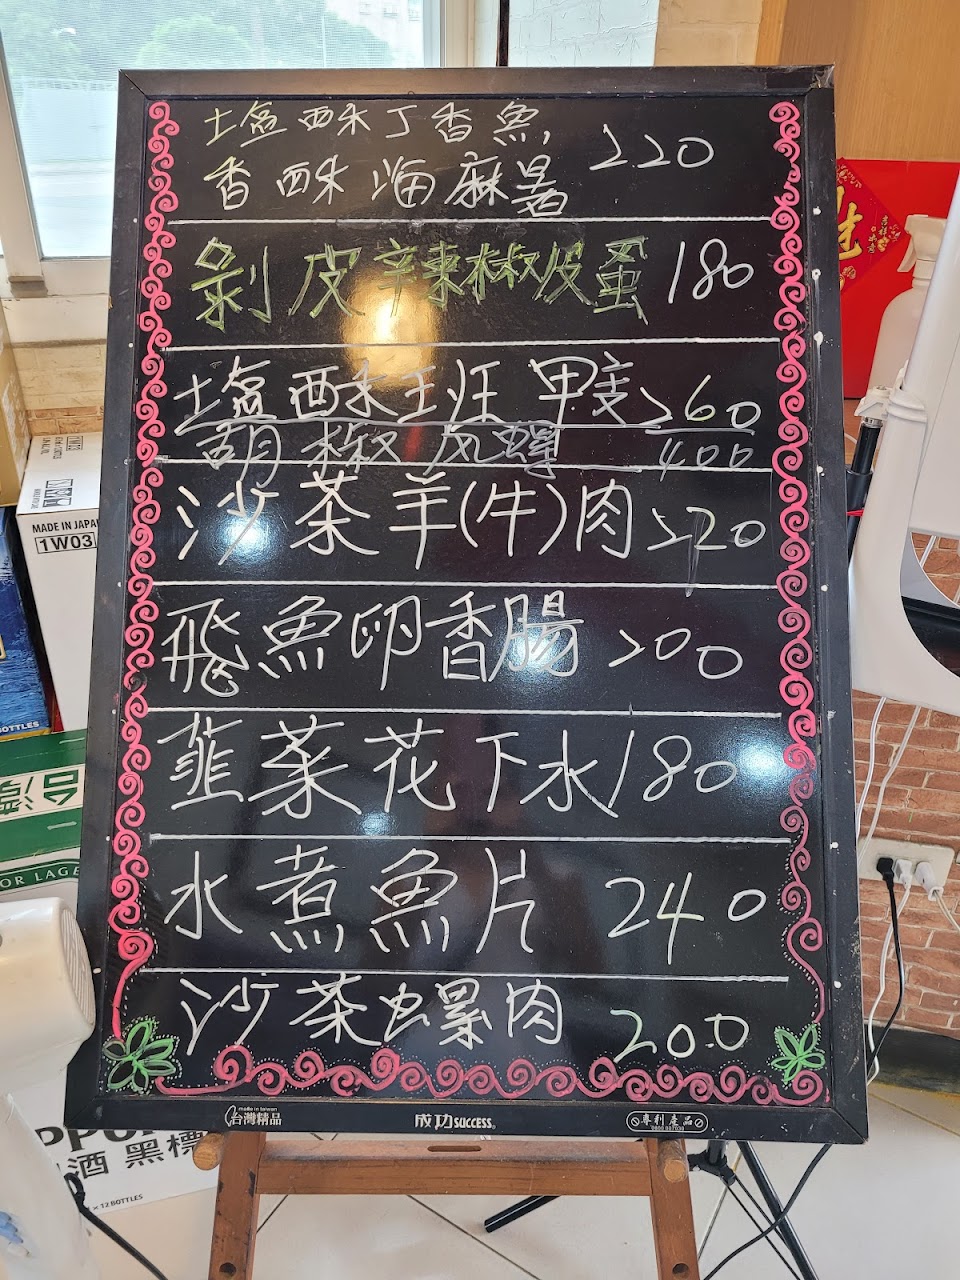 塩酥丁香魚
香酥海麻薯 220
剝皮辣椒皮蛋 180
塩酥班甲 260
胡椒風螺 400
沙茶羊(牛)肉 220
飛魚卵香腸 200
韮菜花下水 180
水煮魚片 240
沙茶螺肉 200
made in taiwan
台灣精品
成功SUCCESS
專利產品
MADE IN JAPAN
1W03
BOTTLES
酒 黑標
× 12BOTTLES